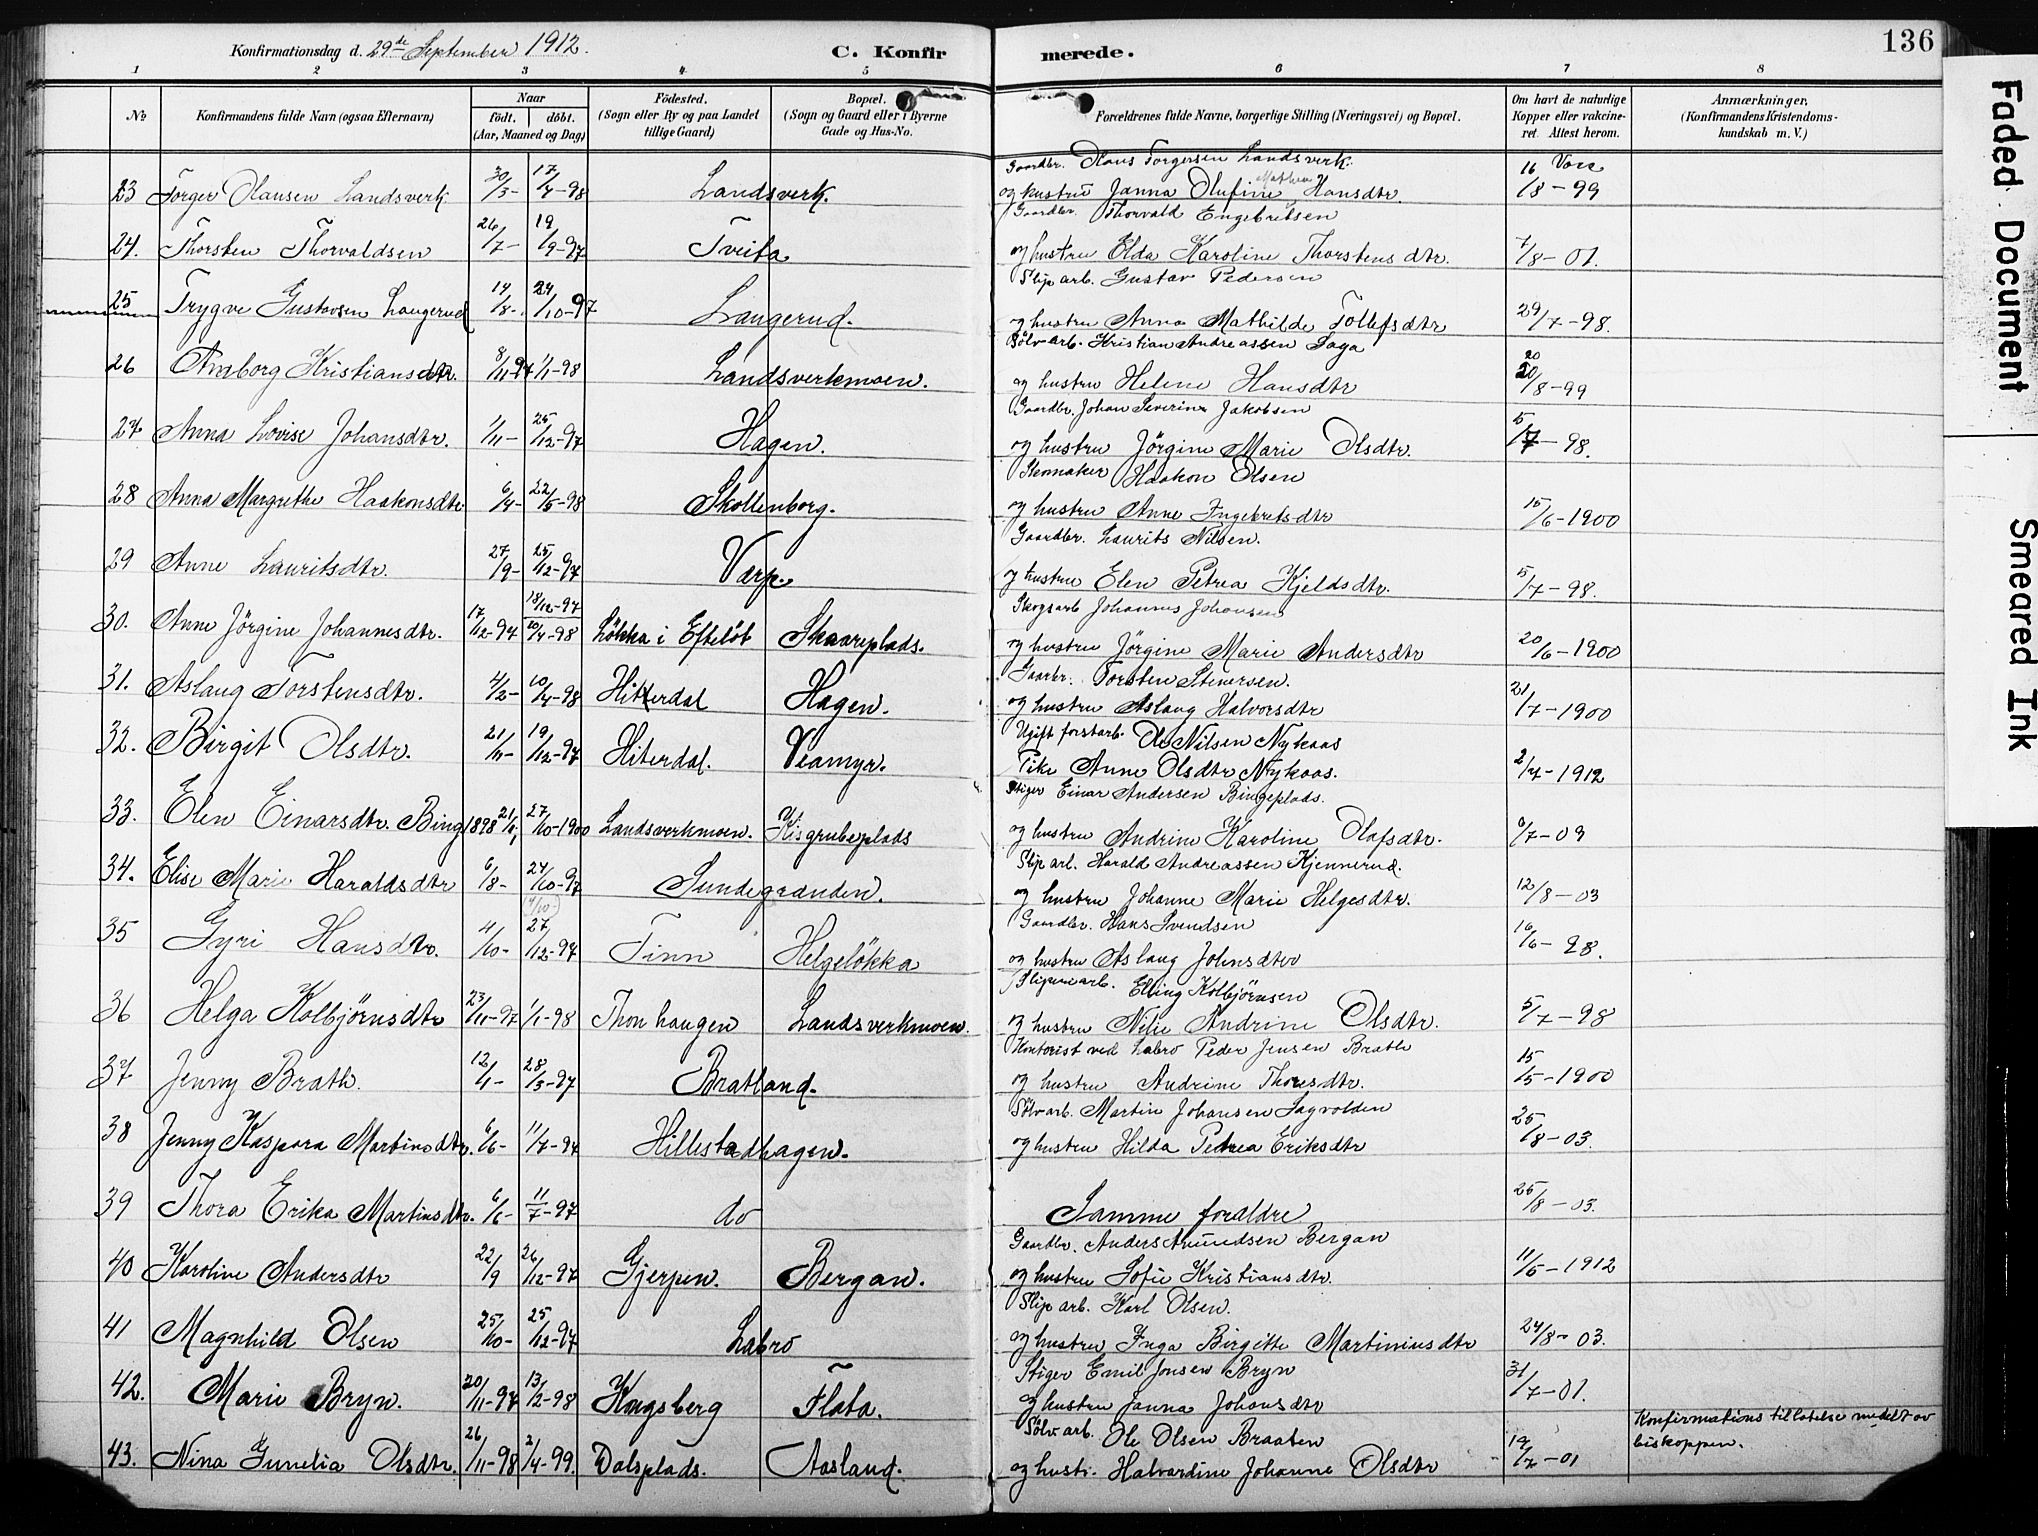 136
Konfirmationsdag d. 29de September 1912.
C. Konfirmerede.
1 2 3 4 5 6 7 8
No
Konfirmandens fulde Navn (ogsaa Efternavn)
Naar
født. døbt.
(Aar, Maaned og Dag)
Fødested.
(Sogn eller By og paa Landet
tillige Gaard)
Bopæl.
(Sogn og Gaard eller i Byerne
Gade og Hus-No.
Forældrenes fulde Navne, borgerlige Stilling (Næringsvei) og Bopæl.
Om havt de naturlige
Kopper eller vakcine-
ret. Attest herom.
Anmærkninger.
(Konfirmandens Kristendoms-
kundskab m. V.)
Gaardbr. Hans Torgersen Landsverk.
23 Torger Hansen Landsverk 30/3- 17/4-98 Landsverk. og hustru Janna Olufine Mathea Hansdtr. 16/8-99 Vacc
Gaardbr. Thorvald Engebretsen
24. Thorsten Thorvaldsen 26/7- 19/9-97 Tveita og hustru Elda Karoline Thorstensdtr. 7/8-01.
Slip arb. Gustav Pedersen
25 Trygve Gustavsen Langerud 14/8- 24/10-97 Langerud. og hustru Anna Mathilde Tollefsdtr 29/7-98.
Sølvarb. Kristian Andreassen Saga
26 Anborg Kristiansdtr. 8/11-97 1/1-98 Landsverkmoen. og hustru Helene Hansdtr 20/8-99
Gaardbr. Johan Severin Jakobsen
27 Anna Lovise Johansdtr. 1/11- 25/12-97 Hagen. og hustru Jörgine Marie Olsdtr. 5/7-98.
Skomaker Haakon Olsen
28 Anna Margrethe Haakonsdtr 6/4- 22/5-98 Skollenborg. og hustru Anne Ingebretsdtr 15/6-1900
Gaardbr. Laurits Nilsen.
29 Anne Lauritsdtr. 27/9- 25/12-97 Varp. og hustru Elen Petrea Kjeldsdtr. 5/7-98.
Skogsarb Johannes Johansen
30. Anne Jörgine Johannesdtr. 17/12-97 18/12-97 10/4-98 Lökka i Efteløt Skaareplads. og hustru Jörgine Marie Andersdtr 20/6-1900
Gaarbr. Torsten Stenersen.
31. Aslaug Torstensdtr. 4/2- 10/4-98 Hitterdal Hagen. og hustru Aslaug Halvorsdtr 21/7-1900
Ugift forstarb. Ole Nilsen Nykaas
32. Birgit Olsdtr. 21/11- 19/12-97 Hiterdal. Veamyr. Pike Anne Olsdtr Nykaas. 2/7-1912
Stiger Einar Andersen Bingeplads.
33. Elen Einarsdtr. Bing 1898 21/6 27/10-1900 Landsverkmoen. Kisgrubeplads og hustru Andrine Karoline Olafsdtr. 6/7-09
Slip arb. Harald Andreassen Kjennerud.
34. Elise Marie Haraldsdtr 6/8- 24/10-97 Sundegranden. og hustru Johanne Marie Helgesdtr. 12/8-03
Gaardbr. Hans Svendsen
35 Gyri Hansdtr. 4/10- 27/12-97 Tinn Helgelökka og hustru Aslaug Johnsdtr 16/6-98.
Sliperiarb. Elling Kolbjörnsen
36 Helga Kolbjörnsdtr 23/11-97 1/1-98 Thon haugen Landsverkmoen. og hustru Nelie Andrine Olsdtr. 5/7-98
Kontorist ved Labro Peder Jensen Brath
37 Jenny Brath. 12/1- 28/3-97 Bratland. og hustru Andrine Thoresdtr. 15/5-1900
Sølvarb. Martin Johansen Sagvolden
38 Jenny Kaspara Martinsdtr. 6/6- 11/7-97 Hillestadhagen. og hustru Hilda Petrea Eriksdtr 25/8-03.
39 Thora Erika Martinsdtr. 6/6- 11/7-97 do Samme foraldre 25/8-03.
Gaardbr. Anders Amundsen Bergan
40 Karoline Andersdtr 22/9 26/12-97 Gjerpen. Bergan. og hustru Sofie Kristiansdtr. 11/5-1912
Slip arb. Karl Olsen.
41 Magnhild Olsen 25/10- 25/12-97 Labro og hustru Inga Birgitte Martiniusdtr 24/8-03.
Stiger Emil Jonsen Bryn
42. Marie Bryn. 20/11-97 13/2-98 Kongsberg Flata. og hustru Janna Johansdtr 31/7-01.
Sølv arb. Ole Olsen Braaten
43. Nina Gunelia Olsdtr. 26/11-98 2/4-99. Dalsplads. Aasland. og hustr. Halvardine Johanne Olsdtr 19/7-01
Konfirmations tillatelse meddelt av
biskoppen.
Faded Document
Smeared Ink